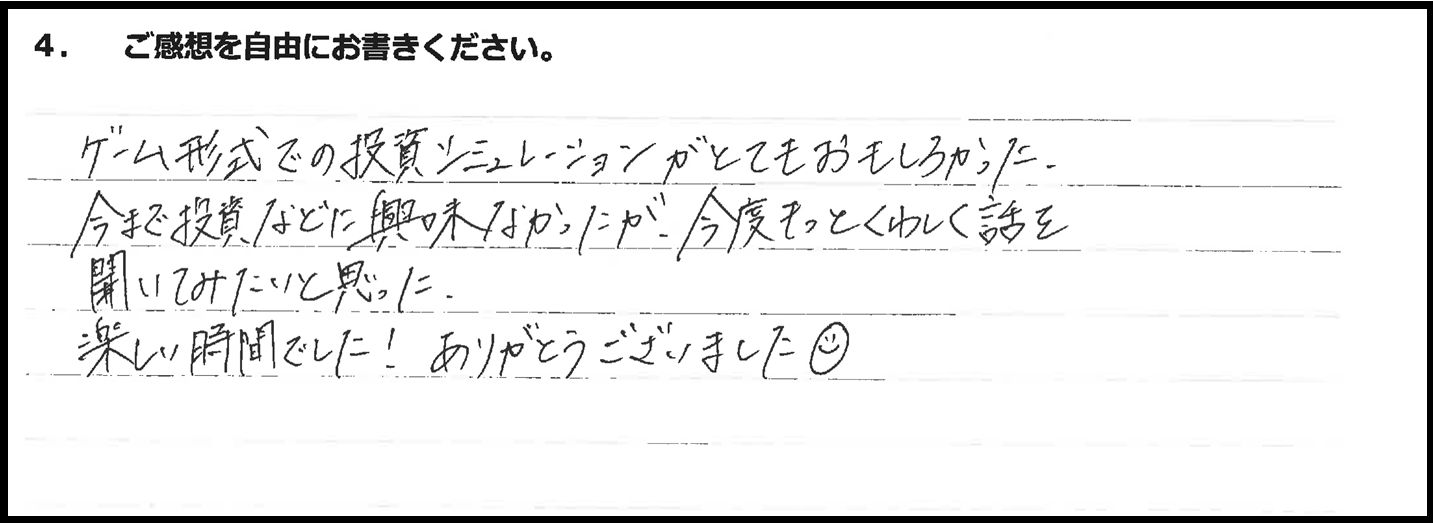 4. ご感想を自由にお書きください。
ゲーム形式での投資シミュレーションがとてもおもしろかった.
今まで投資などに興味なかったが、今度もっとくわしく話を
聞いてみたいと思った.
楽しい時間でした! ありがとうございました☺